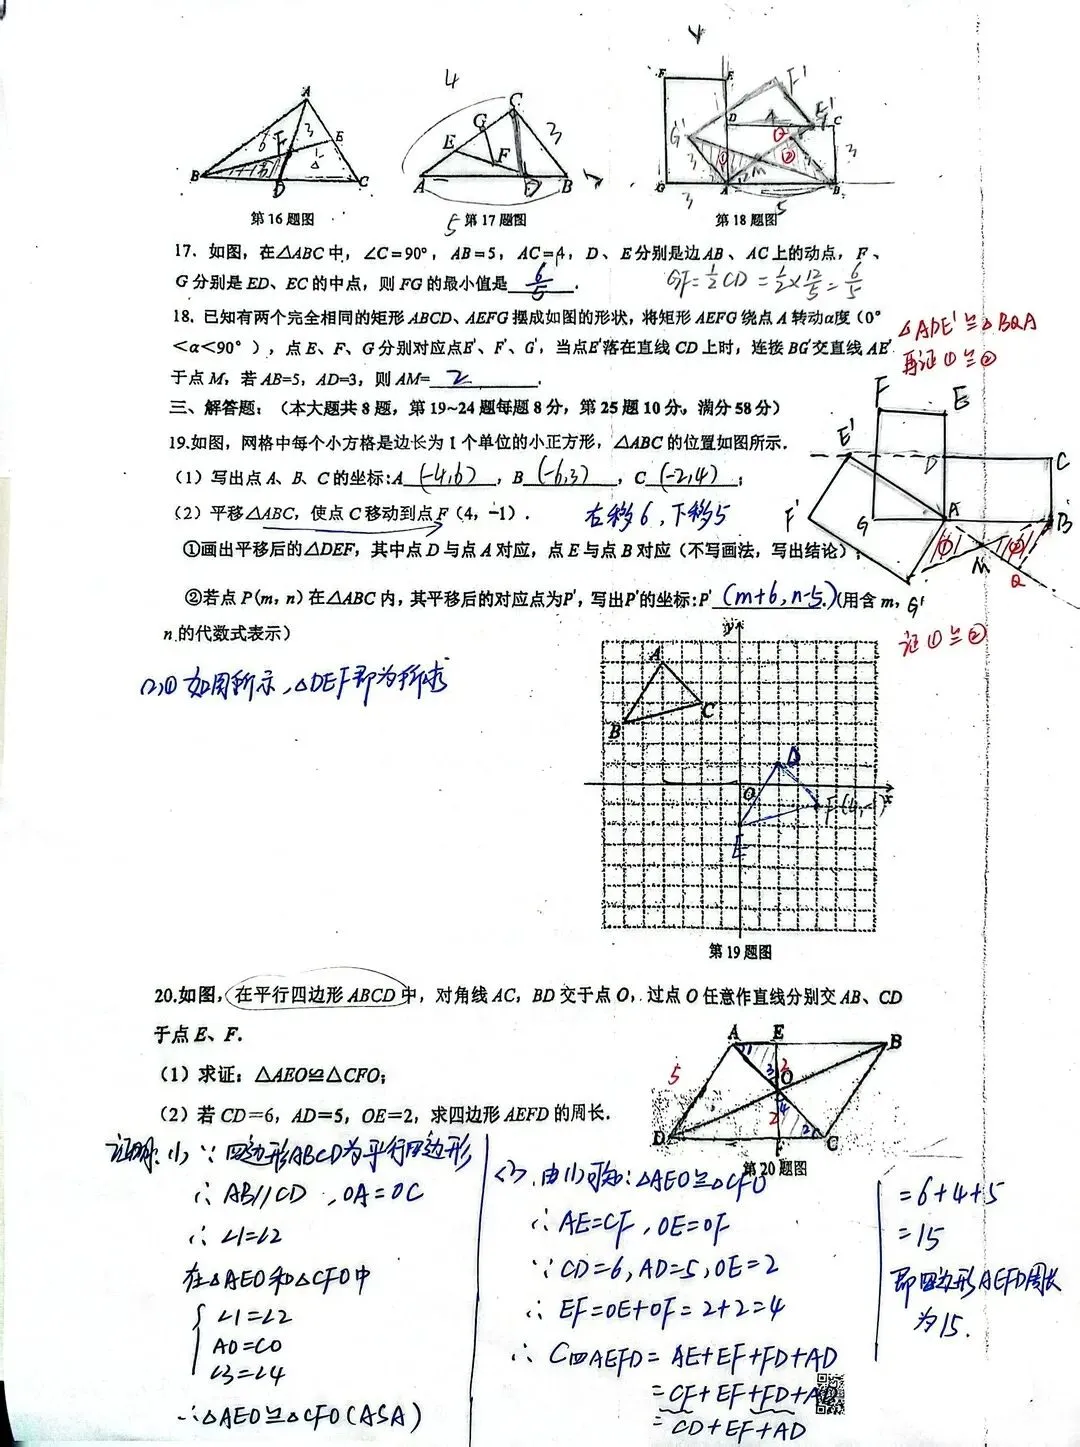 4
A
6
3
F
E
B
D
C
第16题图
4
C
G
3
E
F
A
D
B
5
第17题图
F
E
F'
D
4
E'
C
G'
①
②
3
3
G
A
M
B
3
5
第18题图
17．如图，在△ABC中，∠C=90°，AB=5，AC=4，D、E分别是边AB、AC上的动点，F、
G分别是ED、EC的中点，则FG的最小值是 6/5 ．
GF=1/2CD=1/2×12/5=6/5
18．已知有两个完全相同的矩形ABCD、AEFG摆成如图的形状，将矩形AEFG绕点A转动α度（0°
＜α＜90°），点E、F、G分别对应点E′、F′、G′，当点E′落在直线CD上时，连接BG′交直线AE′
于点M，若AB=5，AD=3，则AM= 2 ．
△ADE'≌△BQA
再证①≌②
三、解答题：（本大题共8题，第19~24题每题8分，第25题10分，满分58分）
19.如图，网格中每个小方格是边长为1个单位的小正方形，△ABC的位置如图所示．
（1）写出点A、B、C的坐标:A (-4,6) ，B (-6,3) ，C (-2,4) ；
（2）平移△ABC，使点C移动到点F（4，-1）．
右移6，下移5
①画出平移后的△DEF，其中点D与点A对应，点E与点B对应（不写画法，写出结论）；
②若点P(m，n)在△ABC内，其平移后的对应点为P′，写出P′的坐标:P′ (m+6,n-5) (用含m，
n的代数式表示）
F
E
E'
D
C
F'
G
A
B
①
②
M
Q
G'
证①≌②
(2)① 如图所示,△DEF即为所求
y
A
C
B
D
O
F(4,-1)
x
E
第19题图
20.如图，在平行四边形ABCD中，对角线AC，BD交于点O，过点O任意作直线分别交AB、CD
于点E、F.
（1）求证：△AEO≌△CFO；
（2）若CD=6，AD=5，OE=2，求四边形AEFD的周长．
A
E
B
1
3
2
O
5
4
2
2
D
F
C
第20题图
证明:(1)∵四边形ABCD为平行四边形
∴AB//CD ,OA=OC
∴∠1=∠2
在△AEO和△CFO中
∠1=∠2
AO=CO
∠3=∠4
∴△AEO≌△CFO(ASA)
(2).由(1)可知:△AEO≌△CFO
∴AE=CF,OE=OF
∵CD=6,AD=5,OE=2
∴EF=OE+OF=2+2=4
∴C四AEFD=AE+EF+FD+AD
=CF+EF+FD+AD
=CD+EF+AD
=6+4+5
=15
即四边形AEFD周长
为15.